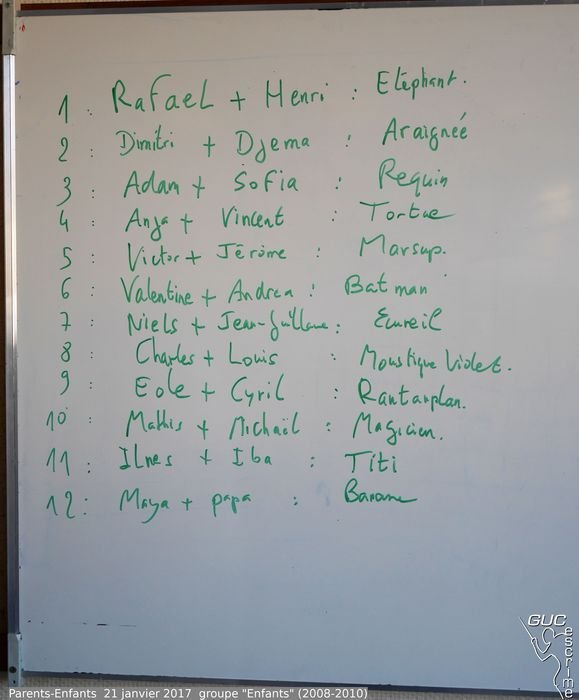 1 : Rafael + Henri : Elephant.
2 : Dimitri + Djema : Araignéé
3 : Adam + Sofia : Requin
4 : Anja + Vincent : Tortue
5 : Victor + Jérôme : Marsup.
6 : Valentine + Andrea : Batman
7 : Niels + Jean-Guillaume : Ecureil
8 : Charles + Louis : Moustique Violet.
9 : Eole + Cyril : Rantanplan.
10 : Mathis + Michaël : Magicien.
11 : Ilnes + Iba : Titi
12 : Maya + papa : Banane
GUC
escrime
Parents-Enfants 21 janvier 2017 groupe "Enfants" (2008-2010)